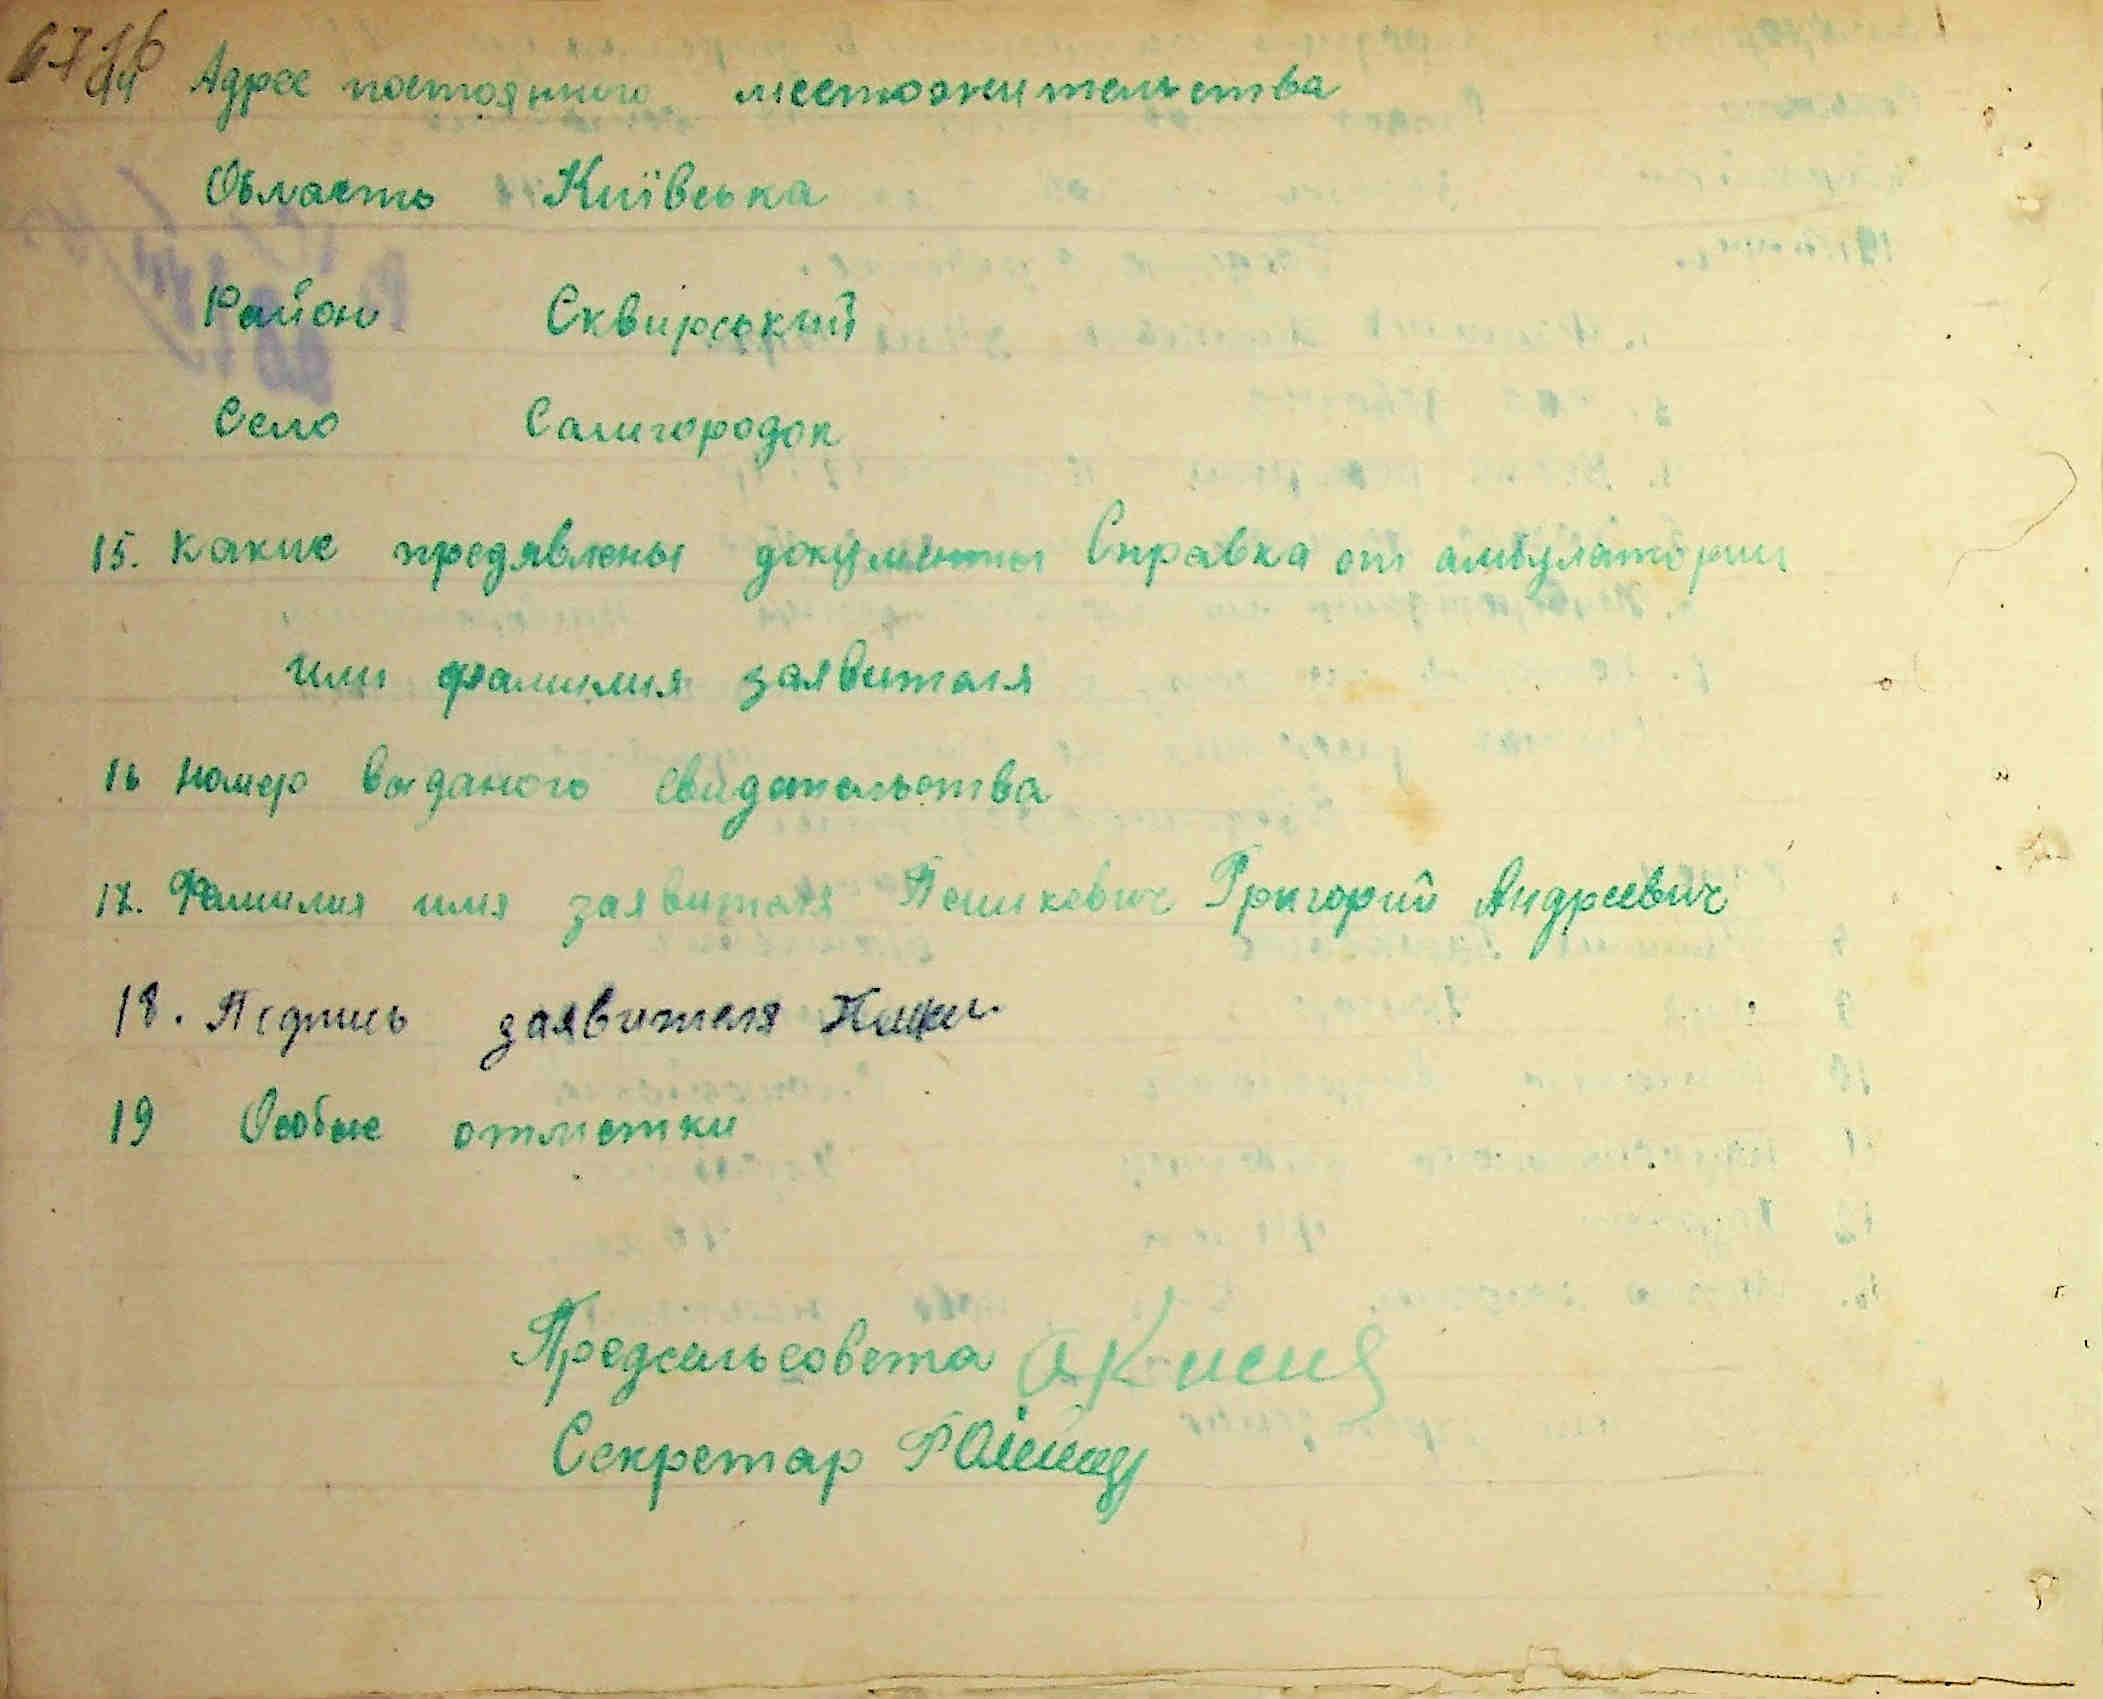 14 Адрес постоянного местожительства
Область Київська
Район Сквирський
Село Самгородок
15. Какие предявлены документы Справка от амбулатории
или фамилия заявителя
16 Номер выданого свидетельства
17. Фамилия имя заявителя Пашкевич Григорий Андреевич
18. Подпись заявителя
19 Особые отметки
Предсельсовета
Секретар